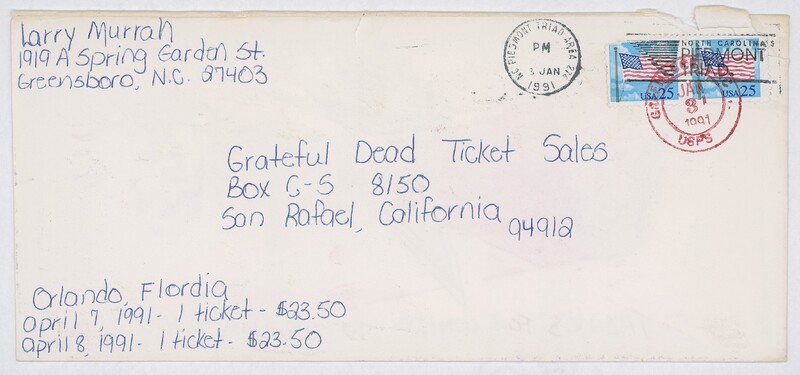 Larry Murrah
1919 A Spring Garden St.
Greensboro, N.C. 27403
N.C. PIEDMONT TRIAD AREA 274
PM
3 JAN
1991
NORTH CAROLINA'S
PIEDMONT
USA 25
USA 25
JAN
3
1991
USPS
Grateful Dead Ticket Sales
Box C-S 8150
San Rafael, California 94912
Orlando, Flordia
April 7, 1991 - 1 ticket - $23.50
April 8, 1991 - 1 ticket - $23.50